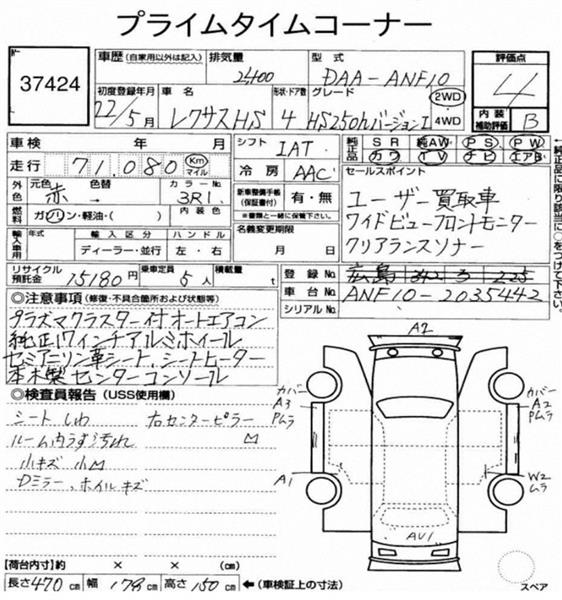 プライムタイムコーナー
37424
車歴 (自家用以外は記入)
排気量
2400
型式
DAA-ANF10
評価点
4
初度登録年月
22/5月
車名
レクサスHS
形状・ドア数
4
グレード
HS250hバージョンI
2WD
4WD
内装
補助評価
B
車検 年 月
シフト IAT
純正装備品 SR 純AW PS PW
カワ TV ナビ エアB
走行 71,080 Km マイル
冷房 AAC
セールスポイント
外色 元色 赤 色替 カラーNo. 3R1
新車整備手帳(保証書付) 有・無
※書類と一緒に保管下さい。
ユーザー買取車
ワイドビューフロントモニター
クリアランスソナー
燃料 ガソリン・軽油・( ) 内装色
名義変更期限
月 日
輸入車用 年式 輸入区分 ハンドル
ディーラー・並行 左・右
リサイクル預託金 15180円 乗車定員 5人 積載量 t
登録No. 広島 342 3 225
車台No. ANF10-2035442
シリアルNo.
◎注意事項 (修復・不具合箇所および状態等)
プラズマクラスター付オートエアコン
純正17インチアルミホイール
セミアニリン革シート、シートヒーター
本木製センターコンソール
◎検査員報告 (USS使用欄)
シートしわ 右センターピラー
ルーム内うす汚れ M
小キズ 小M
Dミラー、ホイルキズ
A2
カバー
A3
PムラA1
カバー
A2
Pムラ
W2
ムラ
AU1
スペア
【荷台内寸】約 × × (cm)
長さ470cm 幅178cm 高さ150cm ←(車検証上の寸法)